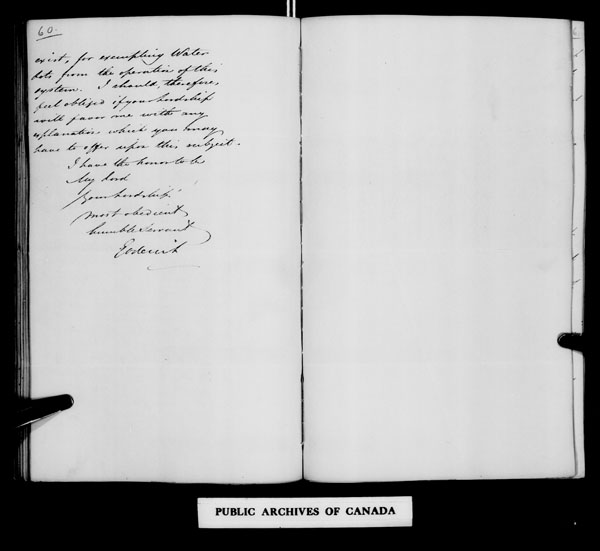 60.
exist, for exempting Water
lots from the operation of this
system. I should, therefore,
feel obliged if your Lordship
will favor me with any
explanation which you may
have to offer upon this subject.
I have the honor to be
My Lord
Your Lordship's
most obedient
humble Servant
Goderich
PUBLIC ARCHIVES OF CANADA